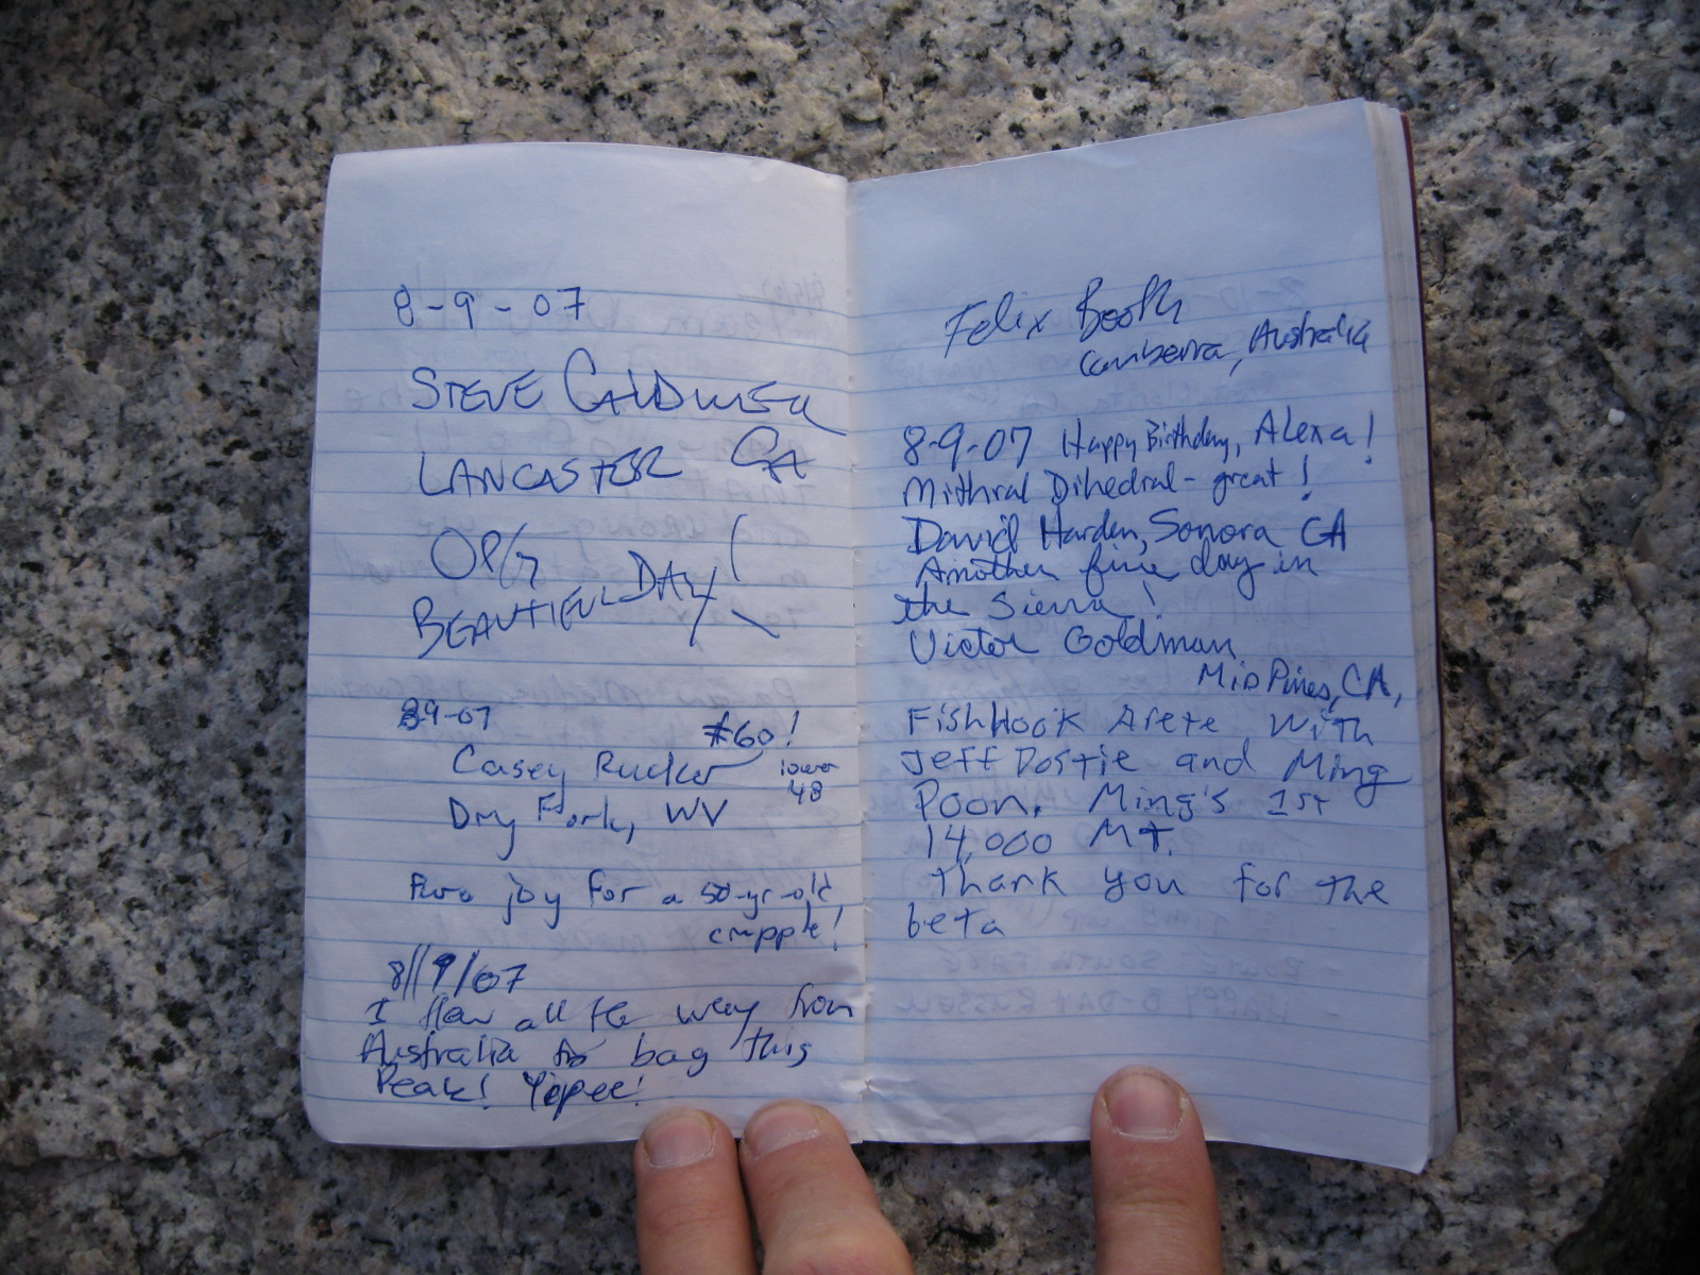 8-9-07
STEVE CALDWELL
LANCASTER CA
OPG
BEAUTIFUL DAY!
8-9-07
#60!
Casey Rucker lower
Dry Fork, WV 48
Pure joy for a 50-yr-old
cripple!
8/9/07
I flew all the way from
Australia to bag this
Peak! Yipee!
Felix Booth
Canberra, Australia
8-9-07 Happy Birthday, Alexa!
Mithral Dihedral - great!
David Harden, Sonora CA
Another fine day in
the Sierra!
Victor Goldman
Mid Pines, CA,
FishHook Arete with
Jeff Dostie and Ming
Poon. Ming's 1st
14,000 Mt.
Thank you for the
beta